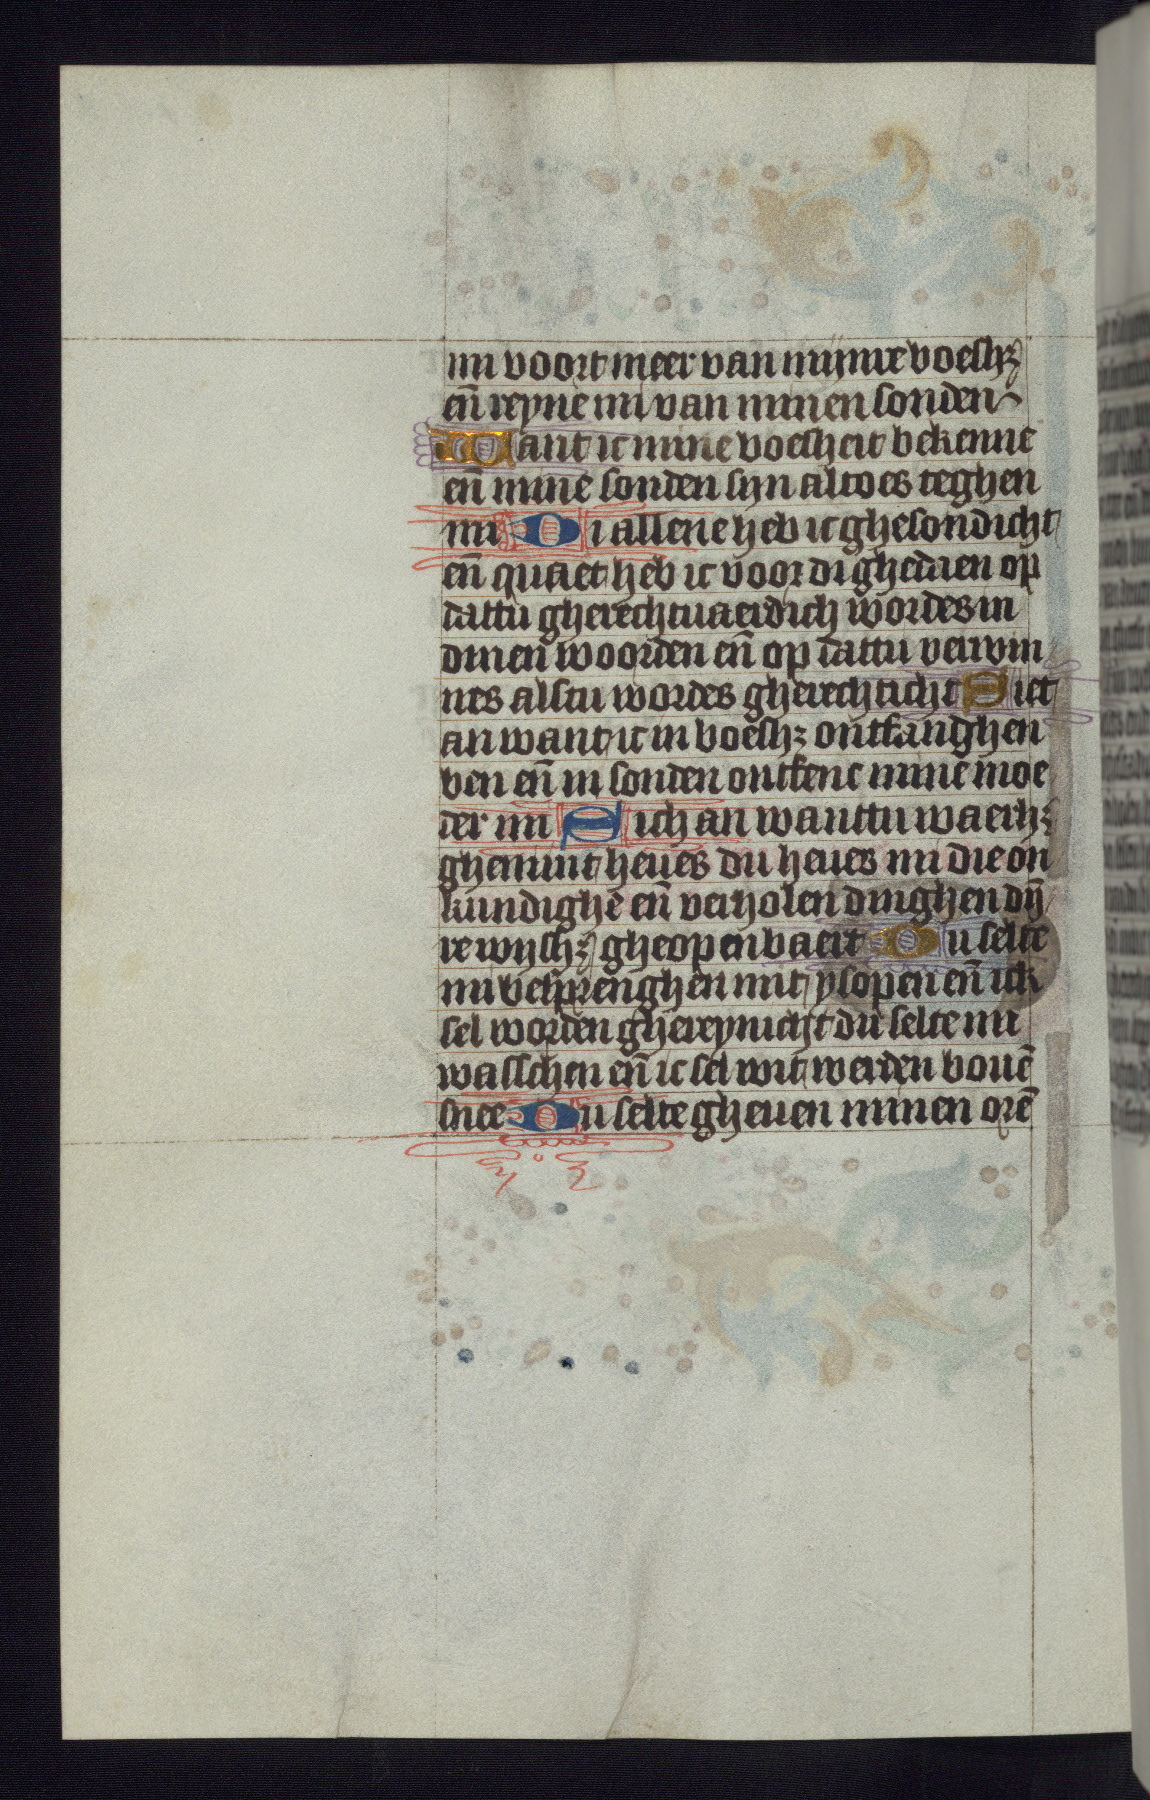 mi voort meer van mijnre boeshꝫ
en̄ reyne mi van minen sonden
Want ic mine boesheit bekenne
en̄ mine sonden sijn altoes teghen
mi Di allene heb ic ghesondicht
en̄ quaet heb ic voor di ghedaen op
dattu gherechtuaerdich wordes in
dinen woorden en̄ op dattu verwin
nes alstu wordes gherechticht Siet
an want ic in boeshꝫ ontfanghen
ben en̄ in sonden ontfenc mine moe
der mi Sich an wanttu waerhꝫ
ghemint heues du heues mi die on
kundighe en̄ verholen dinghen dij̄
re wijshꝫ gheopenbaert Du selte
mi besprenghen mit ysopen en̄ ick
sel worden ghereynicht du selte mi
wasschen en̄ ic sel wit werden bouē
snee Du selte gheuen minen orē